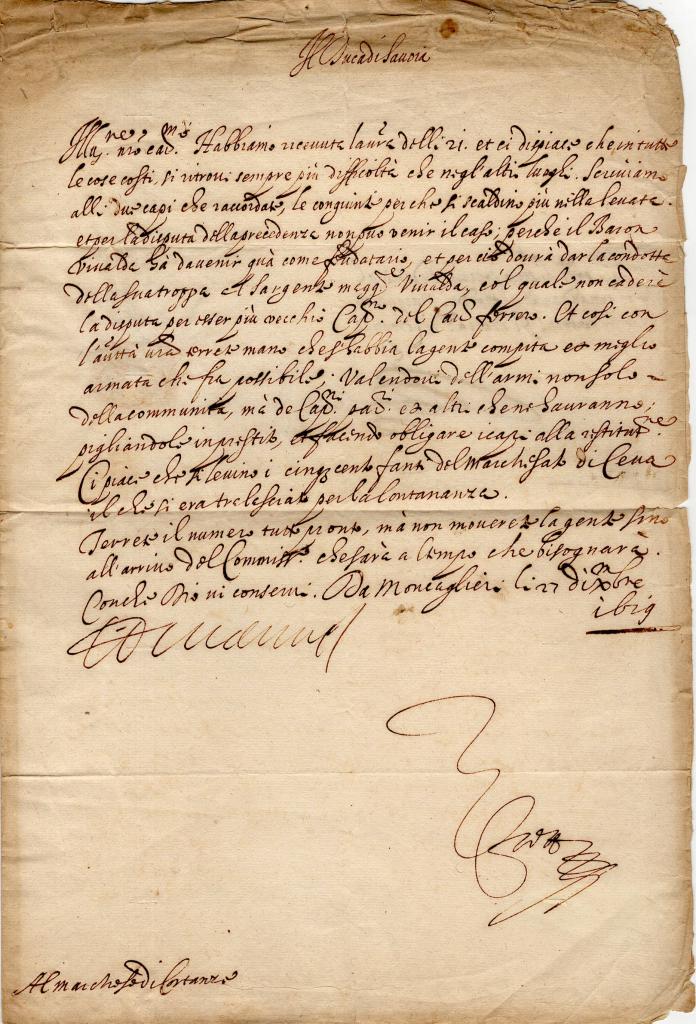 Il Duca di Savoia
Ill.re n.ro car.mo Habbiamo ricevuta la v.ra delli 21. et ci dispiace che in tutte
le cose costì si ritrovi sempre più difficoltà che negl'altri luoghi. Scriviamo
alli due capi che raccordate, le congiunte perche si scaldino più nella levata.
et per la disputa della precedenza non può venir il caso; perche il Baron
Vivalda hà da venir quà come feudatario, et per ciò dourà dar la condotta
della sua troppa al Sargente magg.re Vivalda, col quale non caderà
la disputa per esser più vecchio Cap.no del Cav. ferrero. Et così con
l'autt.à v.ra terrete mano che s'habbia la gente compita et meglio
armata che sia possibile, Valendovi dell'armi non solo
della communità, mà de Cap.ni et altri che ne hauranno;
pigliandole in prestito, et facendo obligare i capi alla restitut.ne
Ci piace che si levino i cinq.cento fanti del Marchesato di Ceva
il che si era tralasciato per la lontananza.
Terrete il numero tutto pronto, mà non moverete la gente sino
all'arrivo del Commiss.o che sarà a tempo che bisognarà.
Con che Dio vi conservi. Da Moncaglieri li 27 di Xmbre
1619
Al marchese di Cortanze